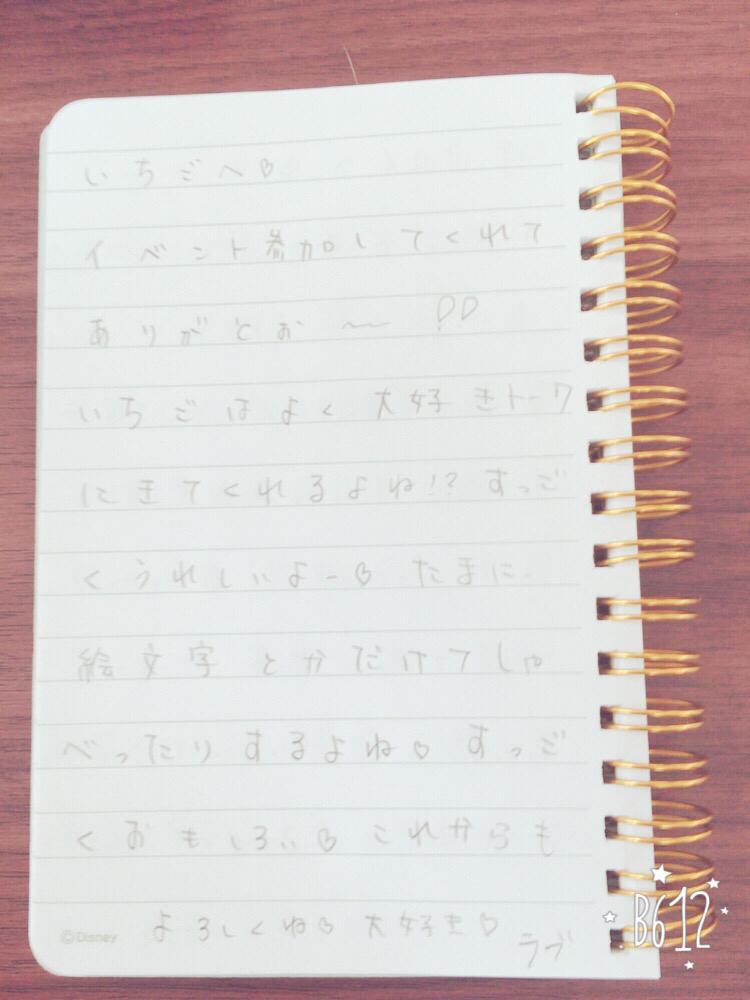 いちごへ♡
イベント参加してくれて
ありがとお〜 !!
いちごはよく大好きトーク
にきてくれるよね!? すっご
くうれしいよー♡ たまに
絵文字とかだけでしゃ
べったりするよね♡ すっご
くおもしろい♡ これからも
よろしくね♡ 大好き♡
ラブ
©Disney
B612